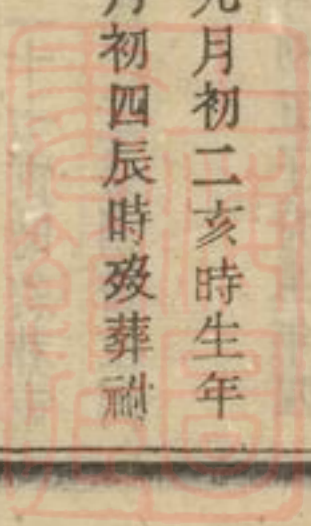 月初二亥時生年
月初四辰時歿葬祔